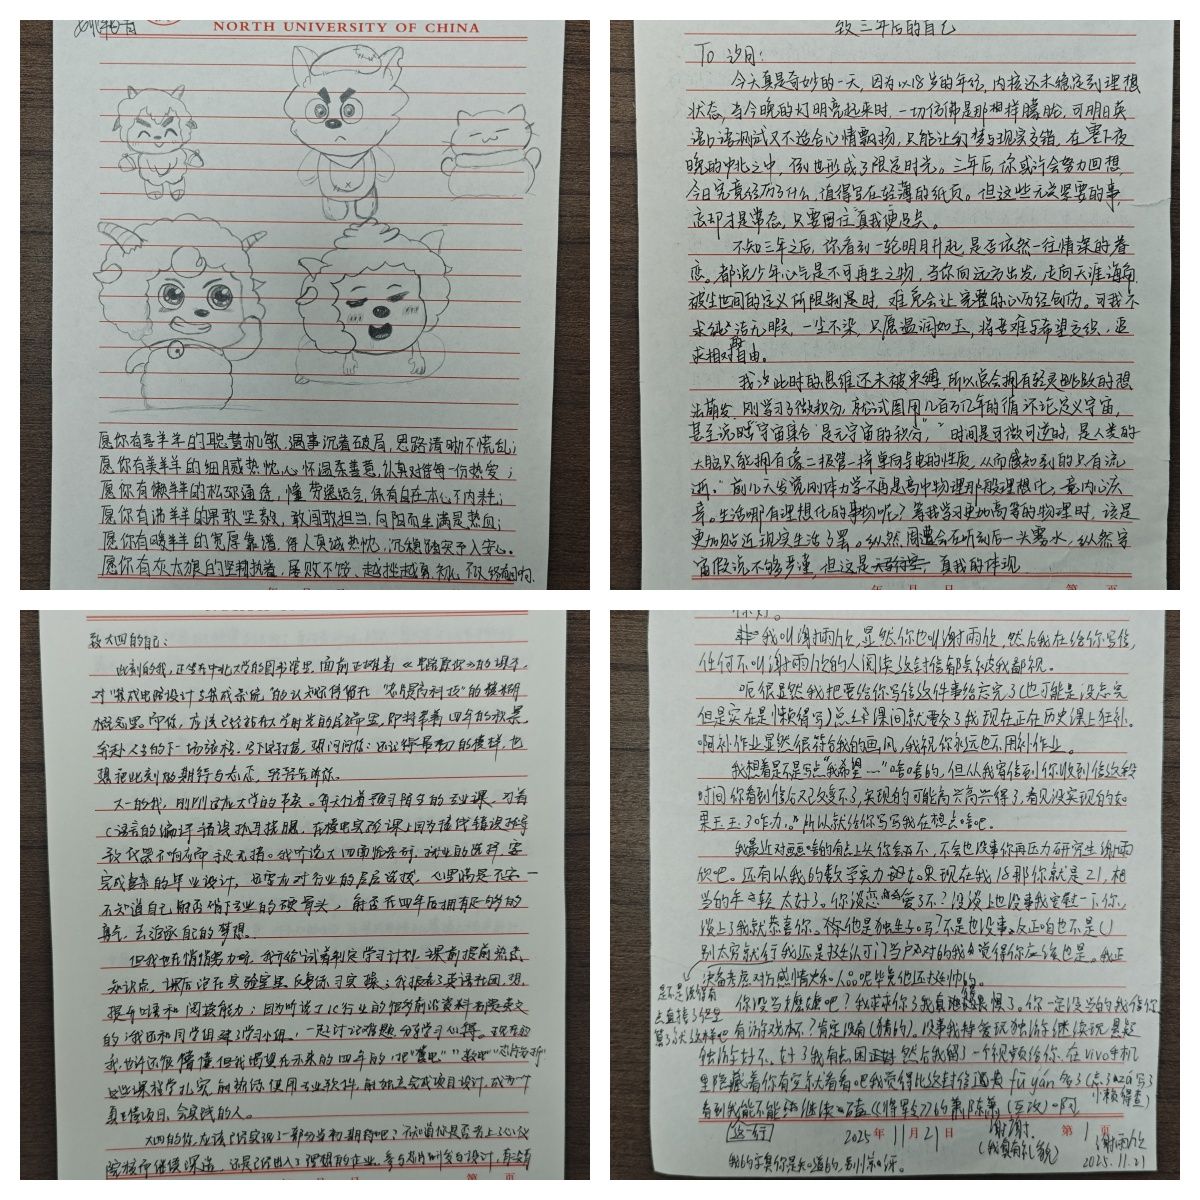 NORTH UNIVERSITY OF CHINA
愿你有喜羊羊的聪慧机敏,遇事沉着破局,思路清晰不慌乱;
愿你有美羊羊的细腻热忱,心怀温柔善意,认真对待每一份热爱;
愿你有懒羊羊的松弛通透,懂劳逸结合,保有自在本心不内耗;
愿你有沸羊羊的果敢坚毅,敢闯敢担当,向阳而生满是热血;
愿你有暖羊羊的宽厚靠谱,待人真诚热忱,沉稳踏实予人安心。
愿你有灰太狼的坚韧执着,屡败不馁、越挫越勇,初心不改终有回响.
年 月 日
致三年后的自己
TO 汐月:
今天真是奇妙的一天,因为以18岁的年纪,内核还未稳定到理想
状态,当今晚的灯明亮起来时,一切仿佛是那想样朦胧,可明日英
语口语测试又不适合心情飘扬,只能让幻梦与现实交错,在零下夜
晚的中北之中,倒也形成了限定时光。三年后,你或许会努力回想,
今日究竟经历了什么,值得写在轻薄的纸页。但这些无关紧要的事,
忘却才是常态,只要留住真我便足矣。
不知三年之后,你看到一轮明月升起,是否依然一往情深的眷
恋。都说少年心气是不可再生之物,当你向远方出发,走向天涯海角,
被尘世间的定义所限制是时,难免会让完整的心历经创伤。可我不
求纯洁无暇,一尘不染,只愿温润如玉,将苦难与希望交织,追
求相对自由。
我次此时的思维还未被束缚,所以总会拥有轻灵跳跃的想
法萌发,刚学习了微积分,就尝试图用几百万亿年的循环论定义宇宙,
甚至说"宇宙集合是元宇宙的积分","时间是可微可逆的,是人类的
大脑只能拥有像二极管一样单向导电的性质,从而感知到的只有流
逝。"前几天发觉刚体力学不再是高中物理那般理想化,竟内心灰
音。生活哪有理想化的事物呢?等我学习更加高等的物理时,该是
更加贴近现实生活了罢。纵然周遭会在听到后一头雾水,纵然宇
宙假说不够严谨,但这是 真我的体现.
年 月 日 第 页
致大四的自己:
此刻的我,正坐在中北大学的图书馆里,面前正摊着《电路原理》的课本,
对"集成电路设计与集成系统"的认知还停留在"芯片是高科技"的模糊
概念里。而你,应该已经站在大学时光的尾端里,即将带着四年的积累,
奔赴人生的下一场旅程。写下这封信,想问问你:还记得最初的模样,也
想把此刻的期待与忐忑,轻轻告诉你。
大一的我,刚刚适应大学的节奏。每天忙着预习陌生的专业课,对着
C语言的编译错误抓耳挠腮,在模电实验课上因为接线错误导
致仪器不响应而手足无措。我听说大四面临考研、就业的选择,要
完成复杂的毕业设计,还要应对行业的层层选拔,心里满是不安一
不知道自己能否啃下专业的硬骨头,能否在四年后拥有足够的
勇气,去追逐自己的梦想。
但我也在悄悄努力呢。我开始试着制定学习计划,课前提前熟悉
知识点,课后泡在实验室里反复练习实操;我报名了英语社团,想
提升口语和阅读能力;因为听说了IC行业的很多前沿资料都是英文
的;我还和同学组建了学习小组,一起讨论难题,分享学习心得。现在的
我,也许还很懵懂,但我渴望在未来的四年的把"模电""数电""芯片分析"
这些课程学扎实,能熟练使用专业软件,能独立完成项目设计,成为一个
真正懂项目、会实践的人。
大四的你,应该已经实现了一部分当初期待吧?不知道你是否考上了心仪
院校而继续深造,还是已经进入了理想的企业,参与芯片研发与设计,有没有
第 页
你好。
我叫谢雨欣,显然你也叫谢雨欣,然后我在给你写信,
任何不叫谢雨欣的人阅读这封信都会被我鄙视。
呃很显然我把要给你写信这件事给忘完了(也可能是没忘完
但是实在是懒得写)总之上课间就要交了我现在正在历史课上狂补。
啊补作业显然很符合我的画风,我祝你永远也不用补作业。
我想着是不是写点"我希望……"啥啥的,但从我寄信到你收到信这段
时间你看到信后又改变不了,实现的可能高兴高兴得了,看见没实现的如
果玉玉了咋办。所以就给你写写我在想点啥吧。
我最近对画画啥的有点上头你会不,不会也没事你再压力研究生谢雨
欣吧。还有以我的数学实力如果现在我18那你就是21,相
当的年轻太好了。你谈恋爱了不?没谈上也没事我安慰一下你,
谈上了我就恭喜你。他是独生子吗?不是也没事。反正咱也不是()
别太穷就行我还是挺认可门当户对的我觉得你应该也是。我正
决备考虑对方感情关系人品呢毕竟他还挺帅的
是不是该得有
你没当大摆摆吧?我求求你了我真很懒了。你一定没当的我信你
有消你戏标?肯定没有(猜的)。没事我特爱玩独游你继续玩悬疑
独游好不、好了我有点困 然后我留了一个视频给你,在vivo手机
里隐藏着你有空尔看看吧我觉得比这封信适费 fū yǎn 多了(忘了zá写了
小懒得查)
看到我能不能继续磕《将军令》的萧陈萧(互攻)啊
这一行
2025年11月21日
谢谢.
(我真有礼貌)
第1页
谢雨欣
2025.11.21
我的字真你是知道的,别介讶。